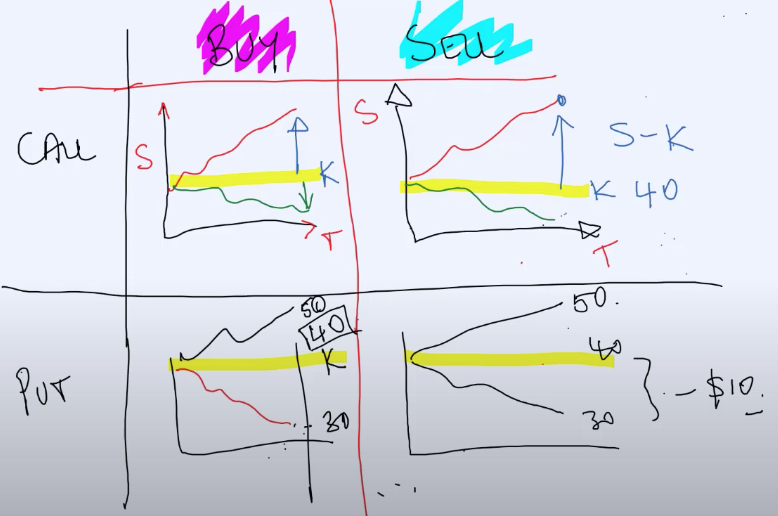 BUY SELL
CALL
S K T
S S-K
K 40
T
PUT
50
40
K
30
50.
40
30
- $10